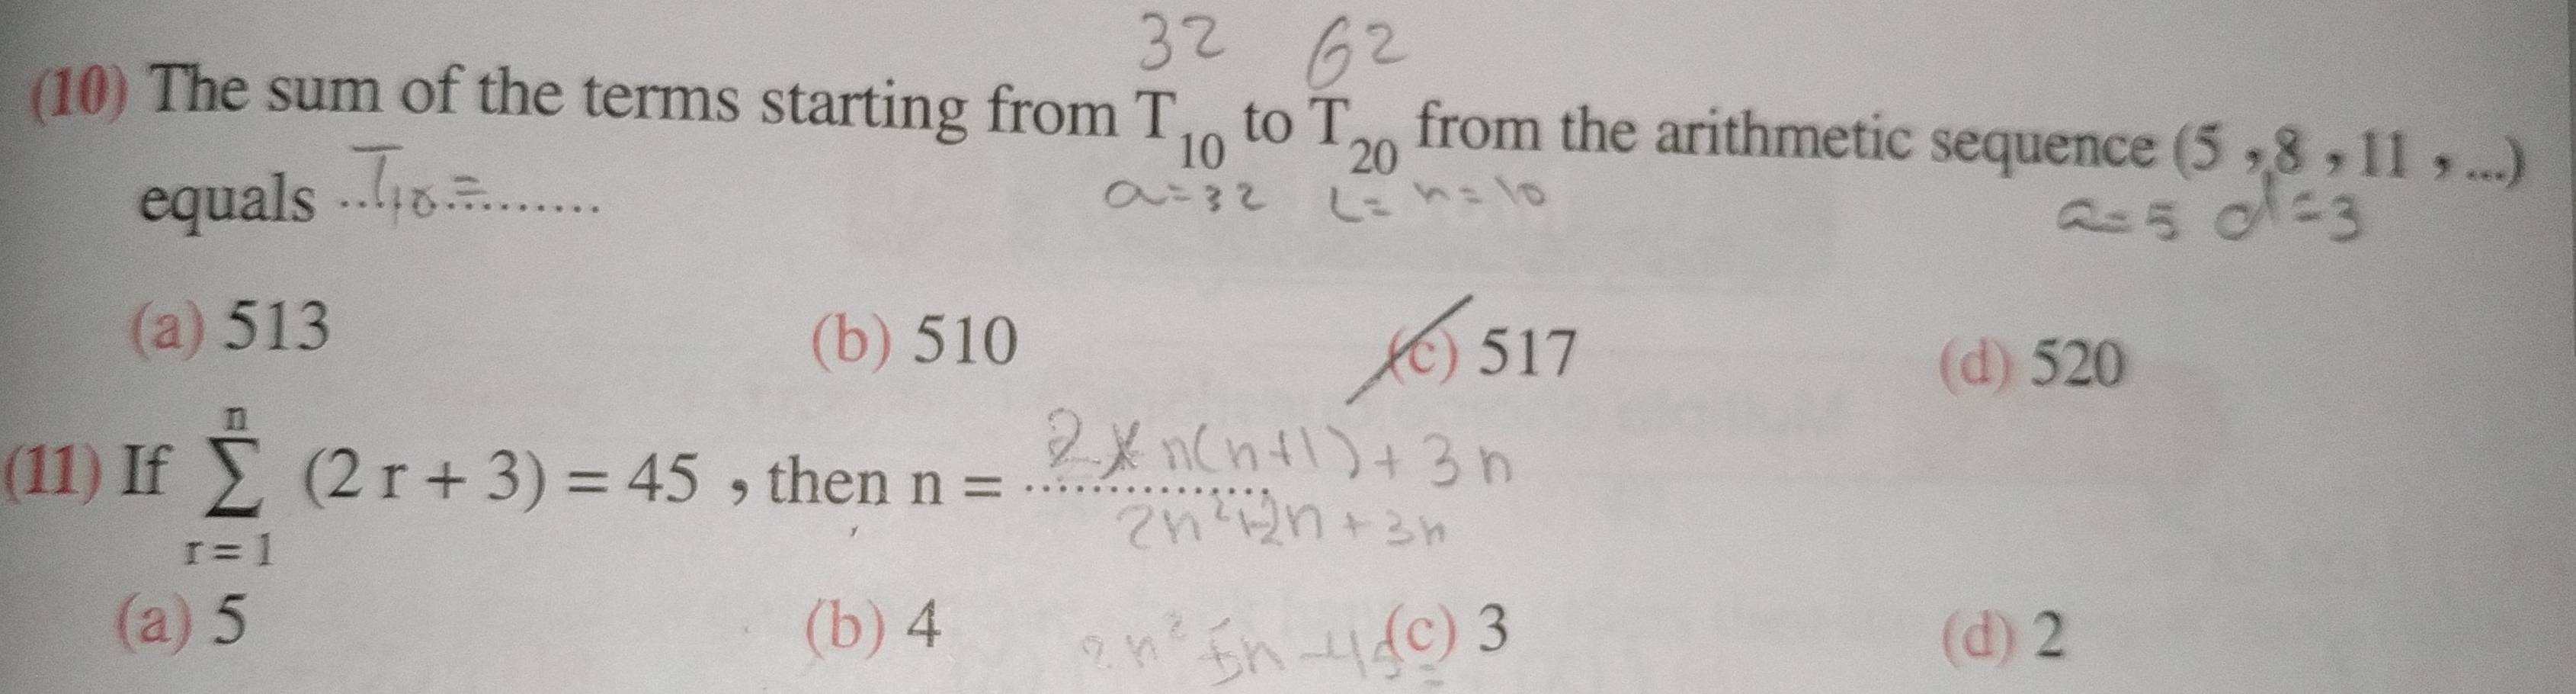 32 62
(10) The sum of the terms starting from T10 to T20 from the arithmetic sequence (5 , 8 , 11 , ...)
equals ..T10=.........
a=32 L= n=10
a=5 d=3
(a) 513 (b) 510 (c) 517 (d) 520
(11) If n∑r=1 (2 r + 3) = 45 , then n = ............... 2 × n(n+1) + 3n
2n²+2n + 3n
(a) 5 (b) 4 (c) 3 (d) 2
2n² 5n -45=